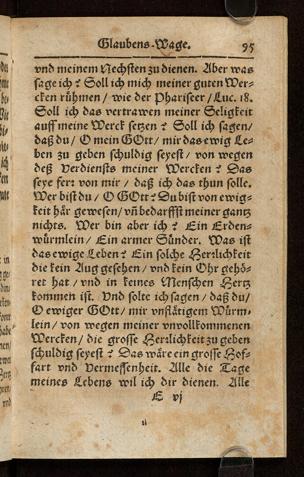 Glaubens-Wage. 95
vnd meinem Nechsten zu dienen. Aber was
sage ich? Soll ich mich meiner guten Wer-
cken rühmen / wie der Phariseer / Luc. 18.
Soll ich das vertrawen meiner Seligkeit
auff meine Werck setzen? Soll ich sagen /
daß du / O mein GOtt / mir das ewig Le-
ben zu geben schuldig seyest / von wegen
deß Verdiensts meiner Wercken? Das
seye fern von mir / daß ich das thun solle.
Wer bist du / O GOtt? Du bist von ewig-
keit här gewesen / vñ bedarffst meiner gantz
nichts. Wer bin aber ich? Ein Erden-
würmlein / Ein armer Sünder. Was ist
das ewige Leben? Ein solche Herrlichkeit
die kein Aug gesehen / vnd kein Ohr gehö-
ret hat / vnd in keines Menschen Hertz
kommen ist. Vnd solte ich sagen / daß du /
O ewiger GOtt / mir vnflätigem Würm-
lein / von wegen meiner vnvollkommenen
Wercken / die grosse Herrlichkeit zu geben
schuldig seyest? Das wäre ein grosse Hof-
fart vnd Vermessenheit. Alle die Tage
meines Lebens wil ich dir dienen. Alle
E vj